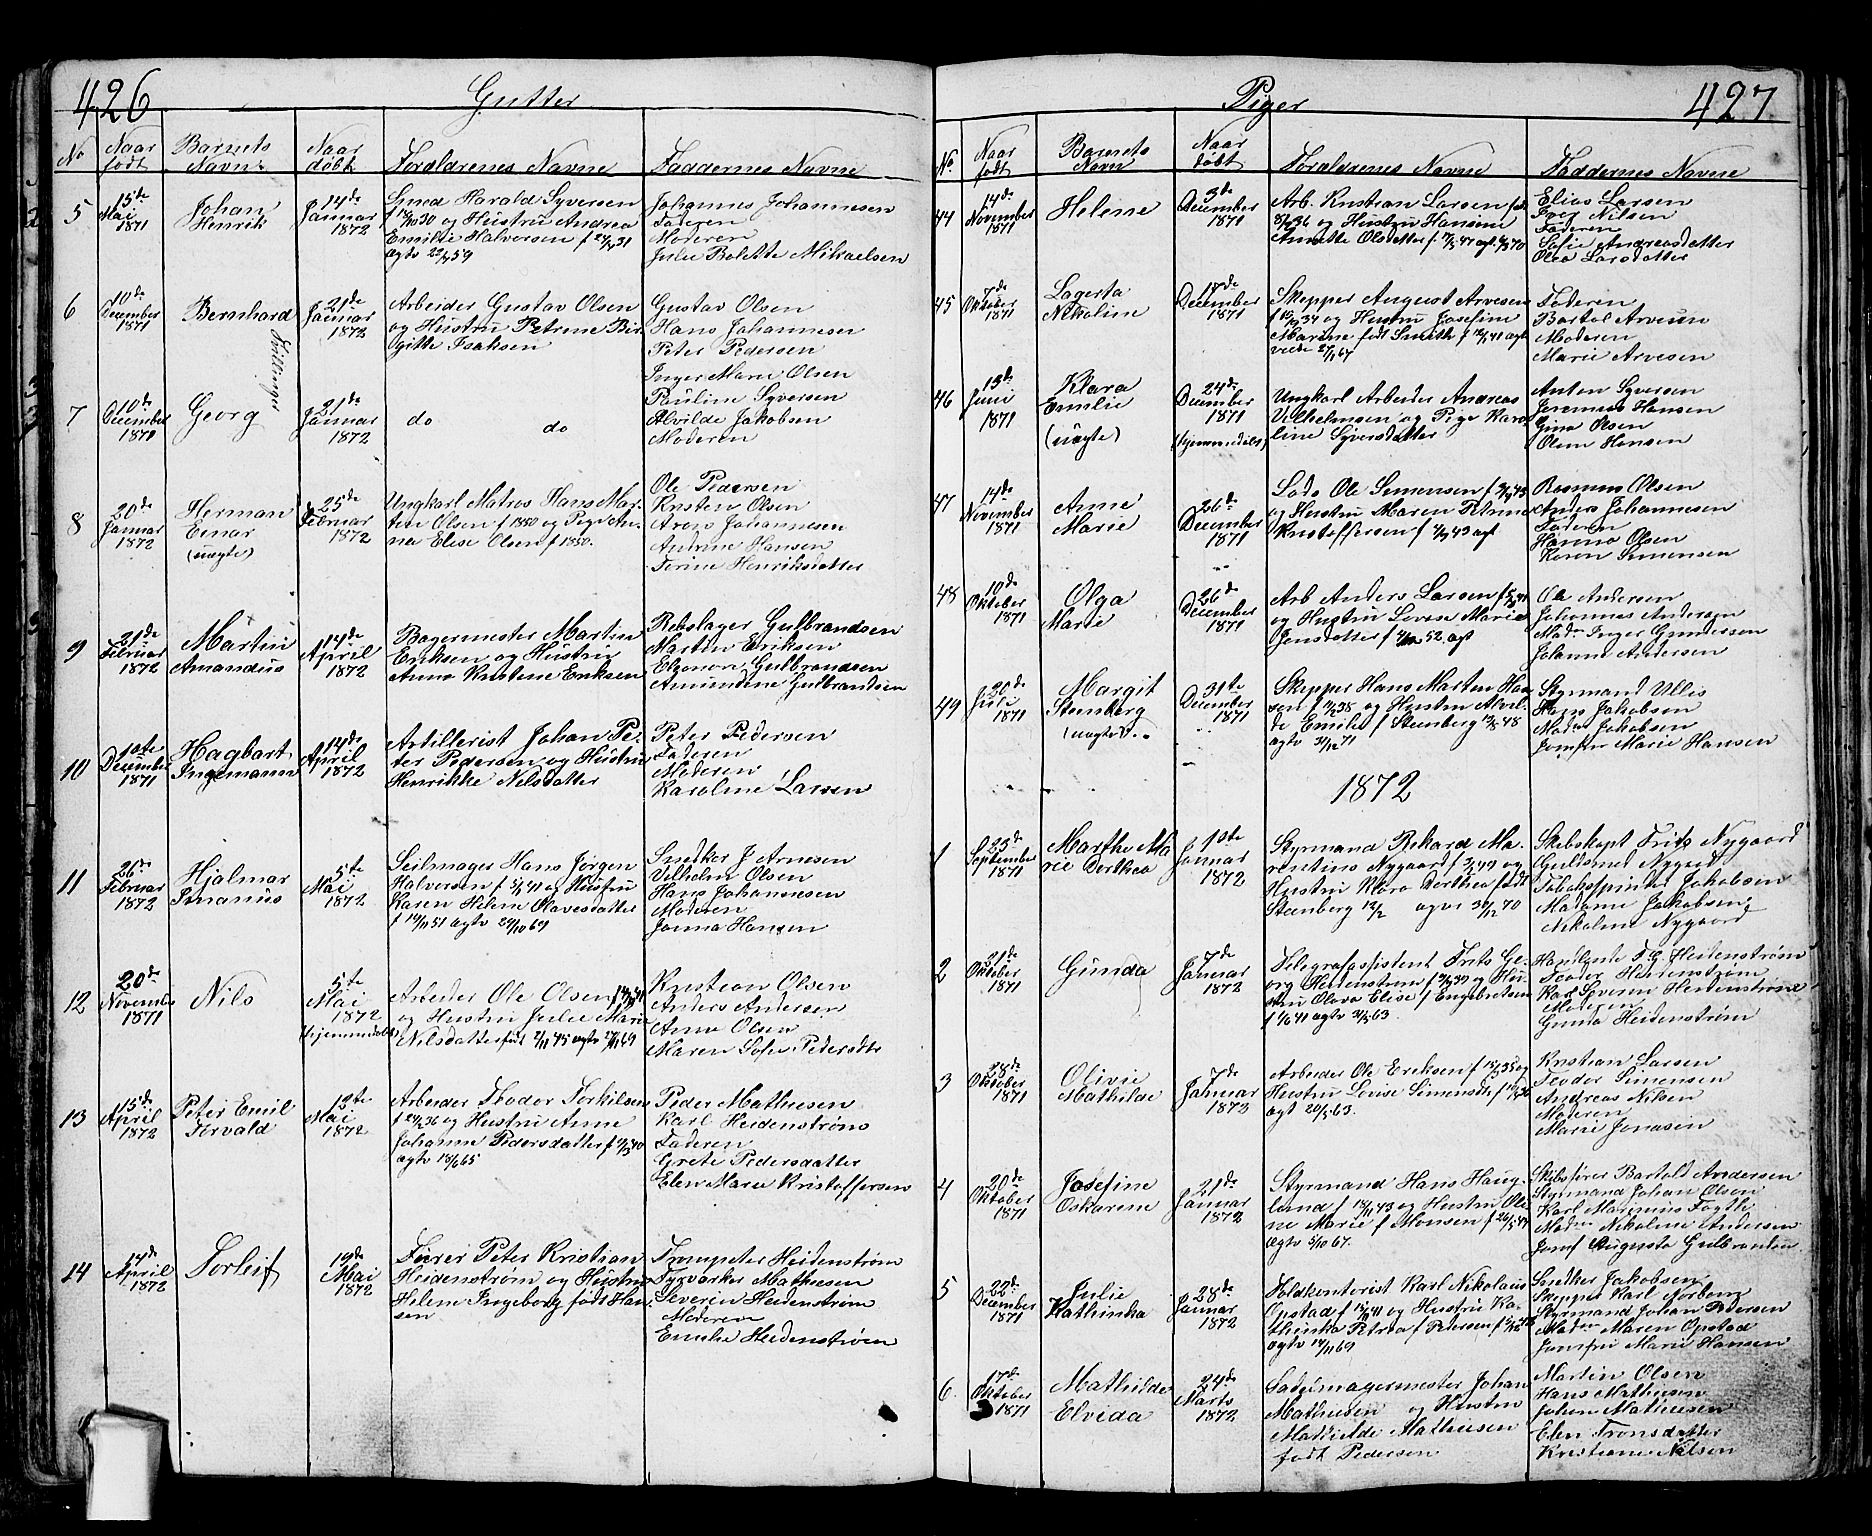 426
Gutter
No
Naar født
Barnets Navn
Naar døbt
Forældrenes Navne
Faddernes Navne
5
15de Mai 1871
Johan Henrik
14de Januar 1872
Smed Harald Syversen
og Hustru Andrea
Emilie Halversen
agtv 59
Johannes Johannesen
Faderen
Moderen
Julie Bolette Mikaelsen
6
10de December 1871
Bernhard
Tvillinger
21de Januar 1872
Arbeider Gustav Olsen
og Hustru Petrine Bir
gitte Isaksen
Gustav Olsen
Hans Johannesen
Peter Pedersen
Inger Marie Olsen
7
10de December 1871
Georg
21de Januar 1872
do do
Pauline Syversen
Alvilde Jakobsen
Moderen
8
20de Januar 1872
Herman Einar (uægte)
25de Februar 1872
Ungkarl Matros Hans Mar
ten Olsen f 1850 og Pige An
na Elise Olsen f 1850.
Ole Pedersen
Kristen Olsen
Arens Johannesen
Andrine Hansen
Torine Henriksdatter
9
21de Februar 1872
Martin Amandus
14de April 1872
Bagermester Martin
Eriksen og Hustru
Anna Kristene Eriksen
Rebslager Gulbrandsen
Martin Eriksen
Eleonora Gulbrandsen
Amundine Gulbrandsen
10
10te December 1871
Hagbart Ingemann
14de April 1872
Artillerist Johan Pe
ter Pedersen og Hustru
Henrikke Nilsdatter
Peter Pedersen
Faderen
Moderen
Karoline Larsen
11
26de Februar 1872
Hjalmar Imanus
5te Mai 1872
Seilmager Hans Jørgen
Halversen f 41 og Hustru
Karen Helene Olavesdatter
f 14/11 51 agtv 29/10 69
Snedker J Arnesen
Vilhelm Olsen
Hans Johannesen
Moderen
Janna Hansen
12
20de November 1871
Nils
5te Mai 1872
(hjemmedøbt)
Arbeider Ole Olsen
og Hustru Julie Marie
Nilsdatter født 2/11 45 agtv 69
Kristian Olsen
Anders Andersen
Anne Olsen
Maren Sofie Pedersdtr
13
15de April 1872
Peter Emil Torvald
12te Mai 1872
Arbeider Thodor Torkilsen
f 36 og Hustru Anne
Johanne Pedersdatter f 40
agtv 18/6 65
Peder Mathiesen
Karl Heidenstrøm
Faderen
Grete Pedersdatter
Elen Marie Kristoffersen
14
14de April 1872
Torleif
19de Mai 1872
Furer Peter Kristian
Heidenstrøm og Hustru
Helene Ingeborg født Han
sen
Trompeter Heidenstrøm
Fyrvarker Mathiesen
Severin Heidenstrøm
Moderen
Emilie Heidenstrøm
427
Piger
No
Naar født
Barnets Navn
Naar døbt
Forældrenes Navne
Faddernes Navne
44
14de November 1871
Helene
3de December 1871
Arb. Kristian Larsen
36 og Hustru Hansine
Annette Olsdatter
Elias Larsen
Iver Nilsen
Faderen
Sofie Andreasdatter
Olea Larsdatter
45
7de Oktober 1871
Lagerta Nikoline
17de December 1871
Skipper August Arvesen
34 og Hustru Josefine
Marine født Smith
viede 67
Faderen
Bartol Arvesen
Moderen
Marie Arvesen
46
13de Juni 1871
Klara Emilie (uægte)
24de December 1871
(hjemmedøbt)
Ungkarl Arbeider Andreas
Vilhelmsen og Pige Karo
line Syversdatter
Anton Syversen
Jeremias Hansen
Gina Olsen
Olava Hansen
47
14de November 1871
Anne Marie
26de December 1871
Lods Ole Simensen
og Hustru Maren Petrine
Kristoffersen f 43 agt
Rasmus Olsen
Anders Johannesen
Faderen
Hanna Olsen
Karen Simensen
48
10de Oktober 1871
Olga Marie
26de December 1871
Arb Anders Larsen
og Hustru Lovise Marie
Jensdatter f 52 agt
Ole Andersen
Johannes Andersen
Madm Inger Gundersen
Johanne Andersen
49
20de Juli 1871
Margit Stenberg (uægte)
31te December 1871
Skipper Hans Marten Han
sen f 38 og Hustru Alvil
de Emilie f Steenberg 48
agtv 31/12 71
Styrmand Ullis
Hans Jakobsen
Madm Jakobsen
Jomfru Marie Hansen
1872
1
23de September 1871
Marthe Ma
rie Dorthea
10de Januar 1872
Styrmand Rikard Ma
rentius Nygaard og
Hustru Klara Dorthea født
Steenberg 12/2 agtv 31/12 70
Skibskapt Fritz Nygaard
Guldsmed Nygaard
Tobakspinder Jakobsen
Madame Jakobsen
Nikoline Nygaard
2
21de Oktober 1871
Gunda
7de Januar 1872
Telegrafassistent Frits Ge
org Heidenstrøm f 39 og Hu
stru Olava Elise f Engebretsen
41 agtv 63.
Handlende F. G. Heidenstrøm
Teodor Heidenstrøm
Karl Severin Heidenstrøm
Moderen
Gunda Heidenstrøm
3
28de Oktober 1871
Olivie Mathilde
7de Januar 1872
Arbeider Ole Eriksen f 38 og
Hustru Lovise Simensdt
agt 20/5 63.
Kristian Larsen
Teodor Simensen
Andreas Nilsen
Moderen
Marie Jonasen
4
20de Oktober 1871
Josefine Oskarine
21de Januar 1872
Styrmand Hans Haug
lund f 43 og Hustru Oli
ne Marie f Monsen
agtv 5/10 67.
Skibsfører Bartold Andersen
Styrmand Johan Olsen
Karl Magnus Fogth
Madm Nikoline Andersen
Jomf Augusta Gulbrandsen
5
22de December 1871
Julie Kathinka
28de Januar 1872
Toldkontorist Karl Nikolaus
Opstad f 41 og Hustru Ka
thinka Petrea f Petersen
agtv 14/11 69
Snedker Jakobsen
Skipper Karl Norberg
Styrmand Johan Pedersen
Madm Maren Opstad
Jomfru Marie Hansen
6.
17de Oktober 1871
Mathilde Elvida
24de Marts 1872
Sadelmagermester Johan
Mathiesen og Hustru
Mathilde Mathiesen
født Pedersen
Martin Olsen
Hans Mathiesen
Johan Mathiesen
Elen Tronsdatter
Kristiane Nilsen